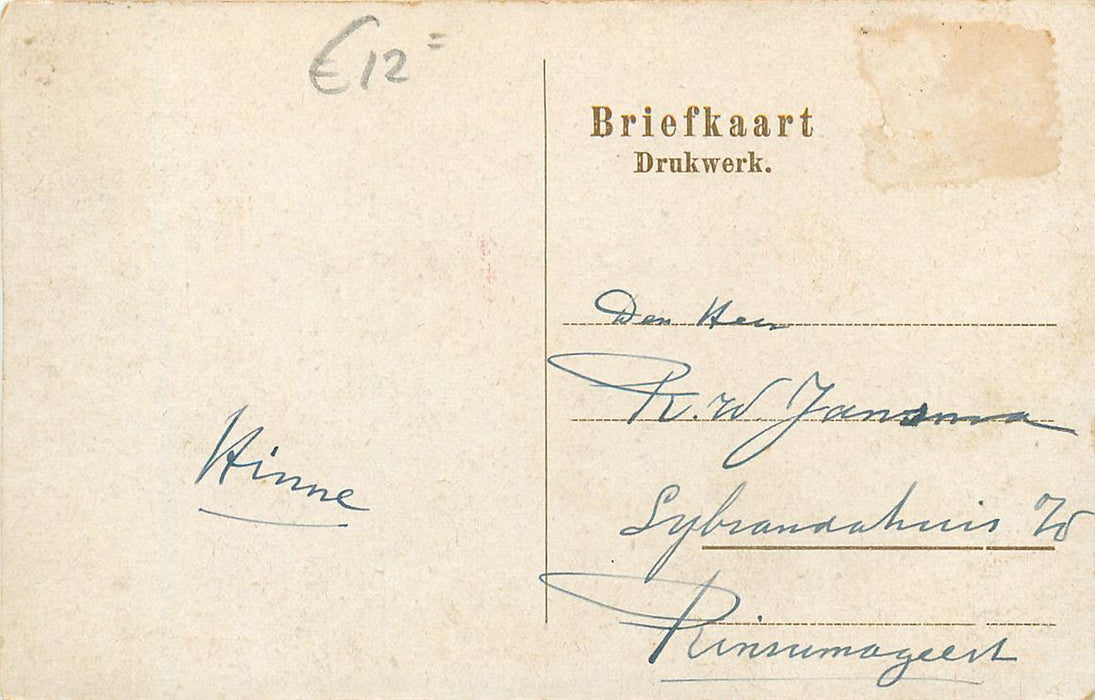 €12=
Briefkaart
Drukwerk.
Den Heer
R. W. Jansma
Sybrandahuis %
Rinsumageest
Hinne